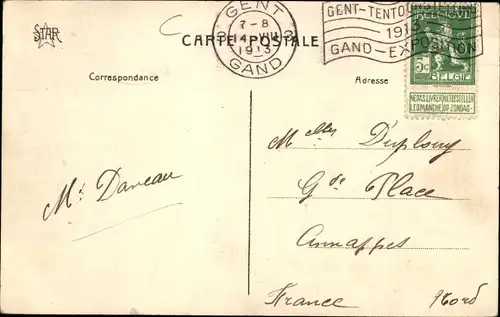 STAR
CARTE POSTALE
GENT
7-8
14 VIII
1913
GAND
GENT-TENTOONSTELLING
1913
GAND-EXPOSITION
5c
BELGIE
NE PAS LIVRER NIET BESTELLEN
LE DIMANCHE OP ZONDAG
Correspondance
Adresse
Mt Daneau
Melles Duplouy
Gde Place
Annappes
France Nord